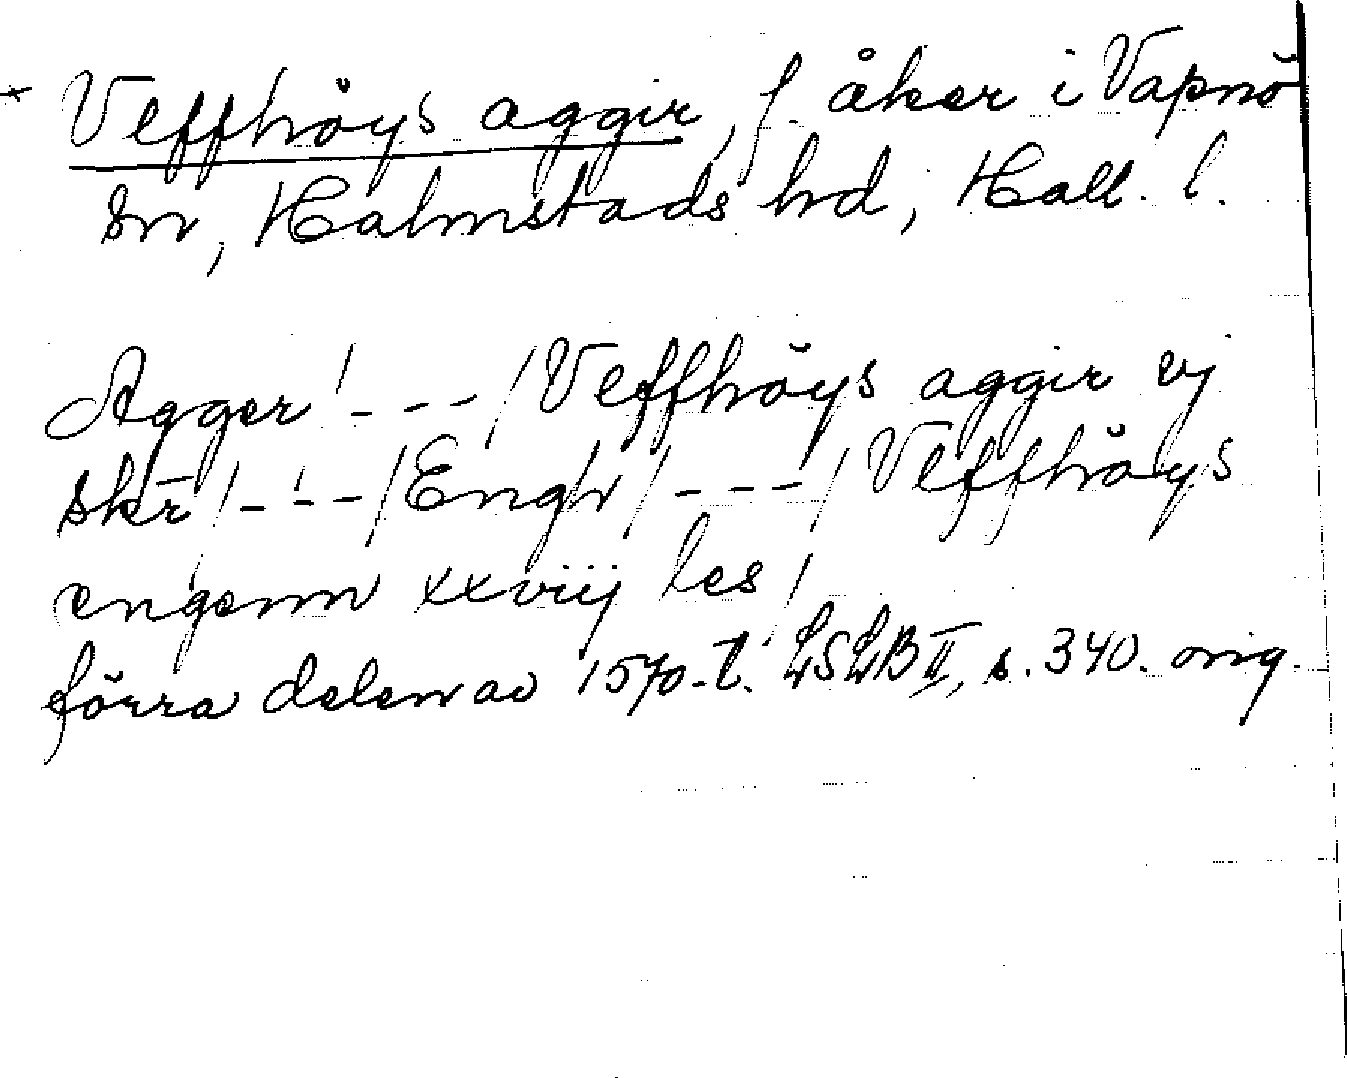 * Veffhöys aggir, f. åker i Vapnö
sn, Halmstads hd, Hall. l.
Agger /---/ Veffhöys aggir vj
skr̄ /---/ Engh /---/ Veffhöys
engenn xxviij les /
förra delen av 1570-t. LSLB II, s. 340. orig.